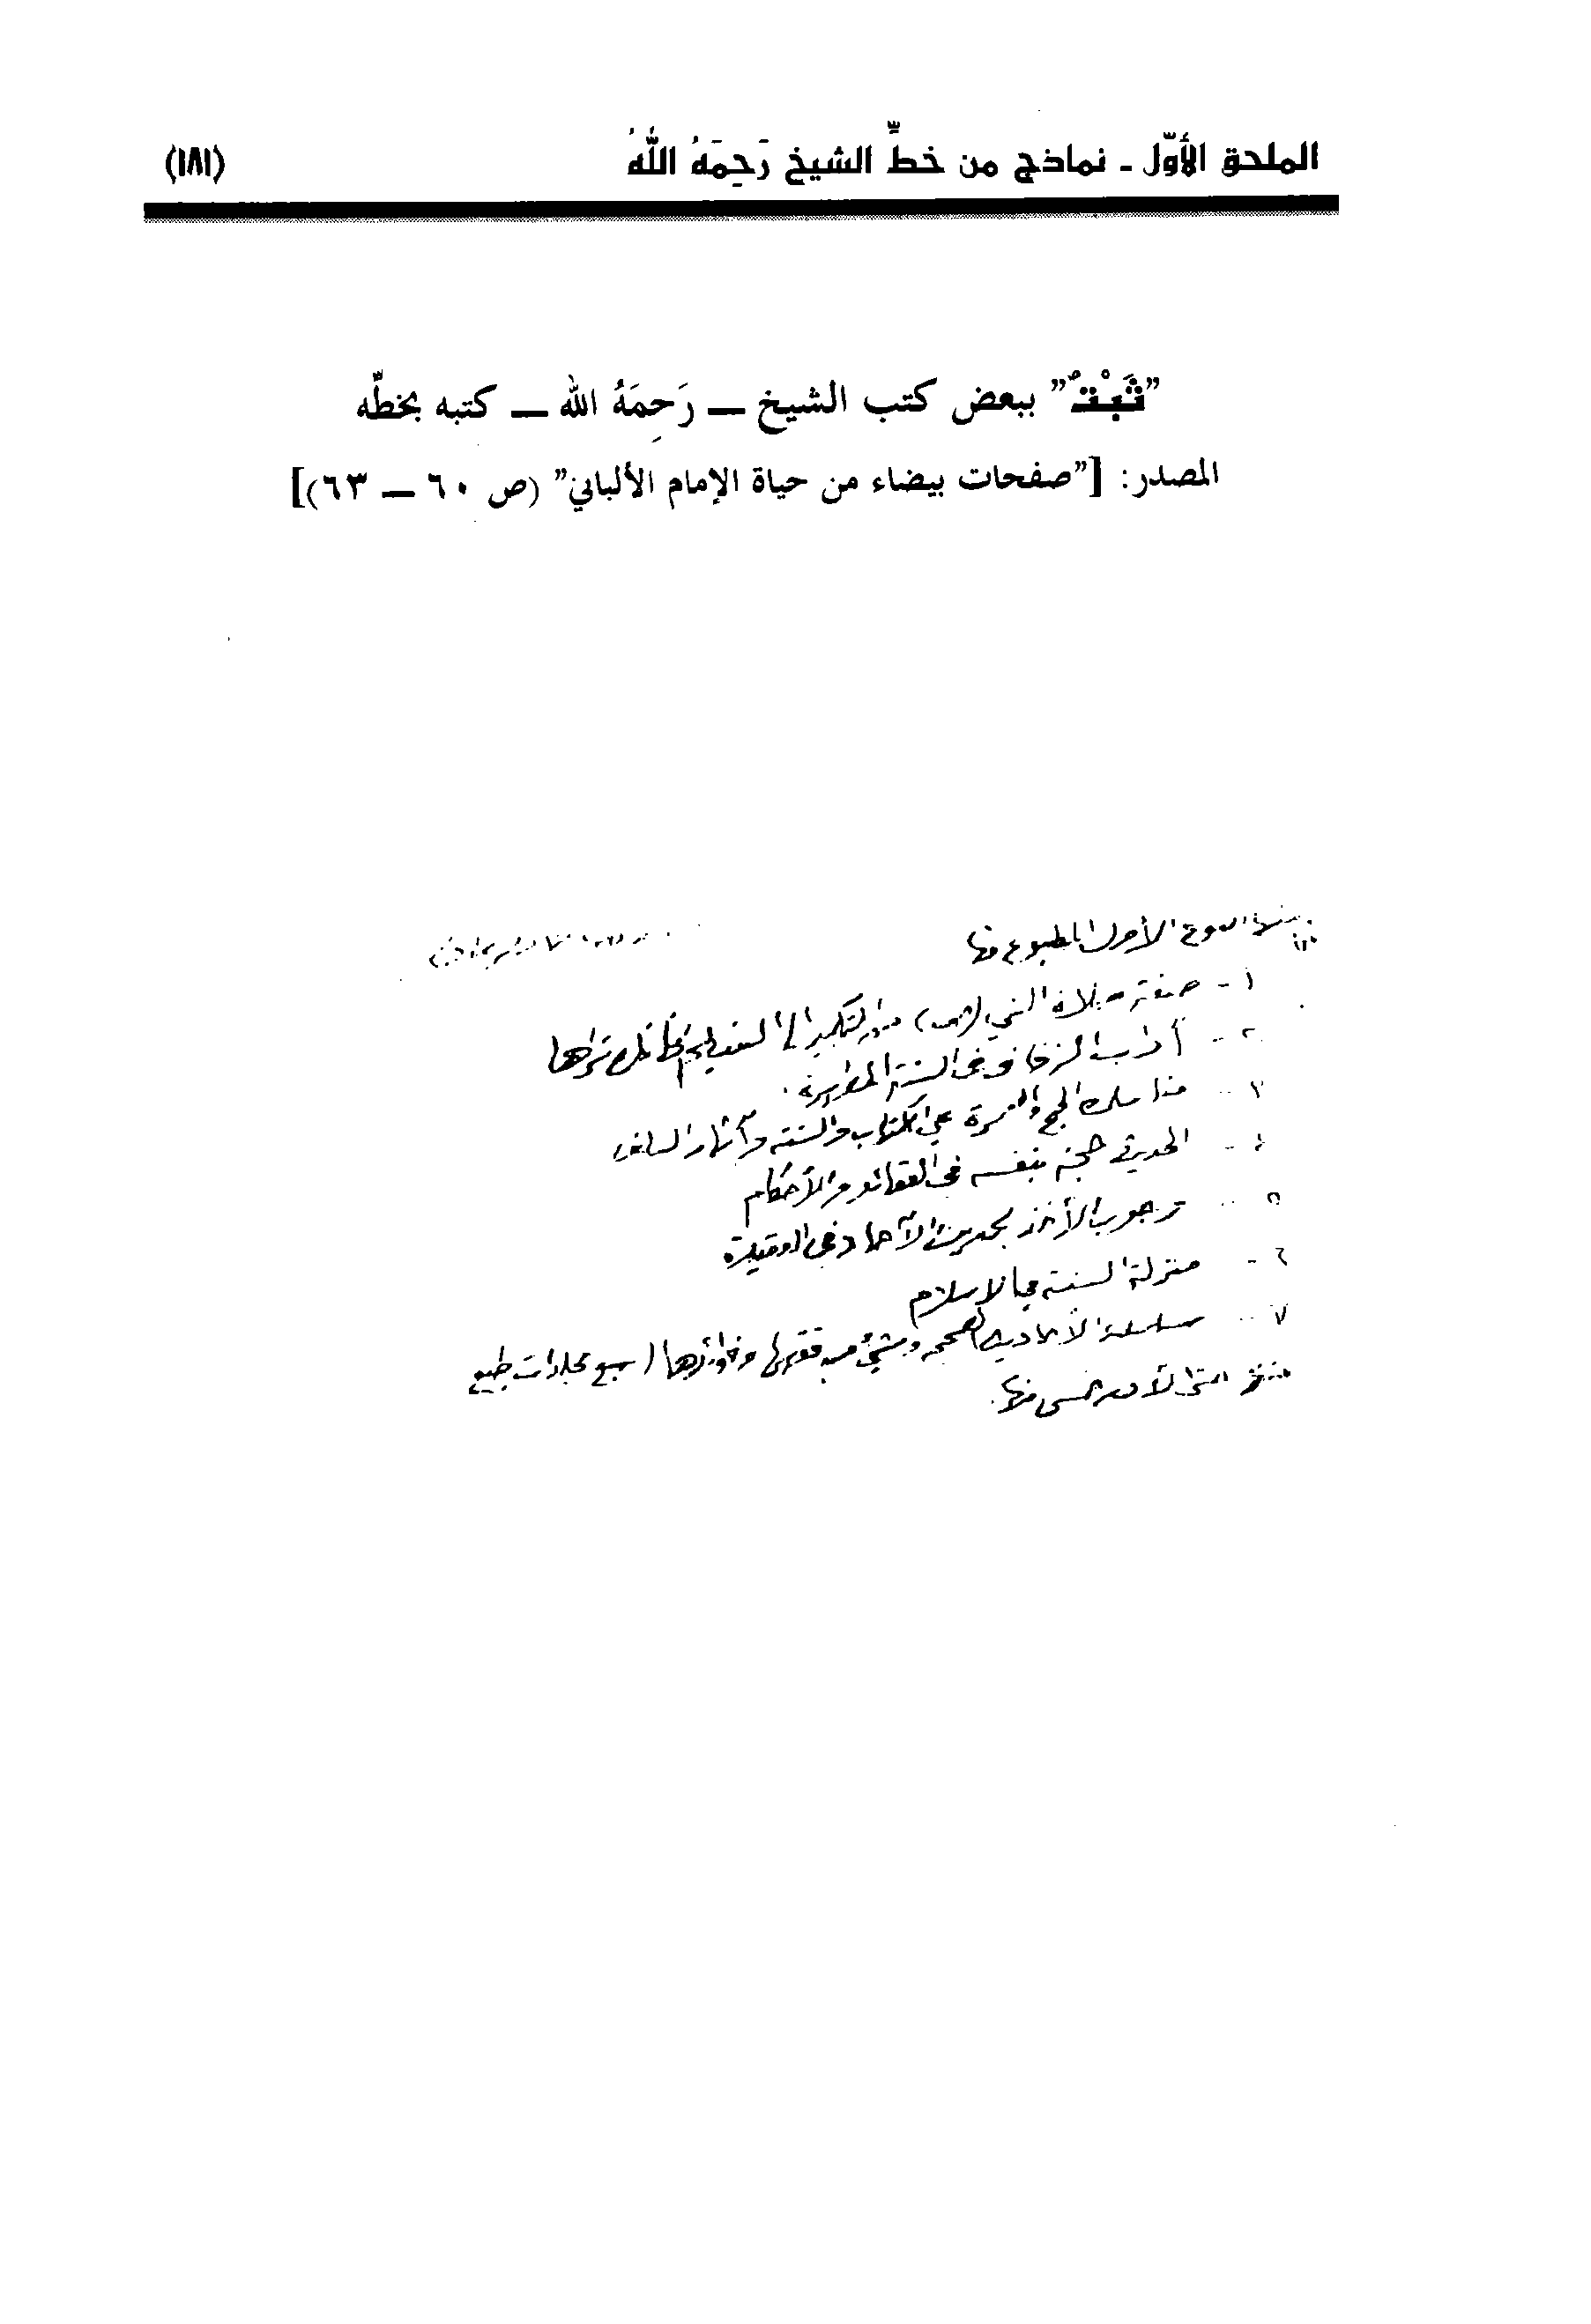 الملحق الأوّل - نماذج من خطِّ الشيخ رَحِمَهُ اللَّهُ (١٨١)
"ثَبْتٌ" ببعض كتب الشيخ — رَحِمَهُ الله — كتبه بخطّه
المصدر: ["صفحات بيضاء من حياة الإمام الألباني" (ص ٦٠ — ٦٣)]
النوع الأول المطبوع منها
١- صفة صلاة النبي (ص) من التكبير إلى التسليم كأنك تراها
٢- آداب الزفاف في السنة المطهرة.
٣- مناسك الحج والعمرة في الكتاب والسنة وآثار السلف
٤- الحديث حجة بنفسه في العقائد والأحكام
٥- وجوب الأخذ بحديث الآحاد في العقيدة
٦- منزلة السنة في الإسلام
٧- سلسلة الأحاديث الصحيحة وشيء من فقهها وفوائدها (سبع مجلدات طبع
منه حتى الآن خمس منها.